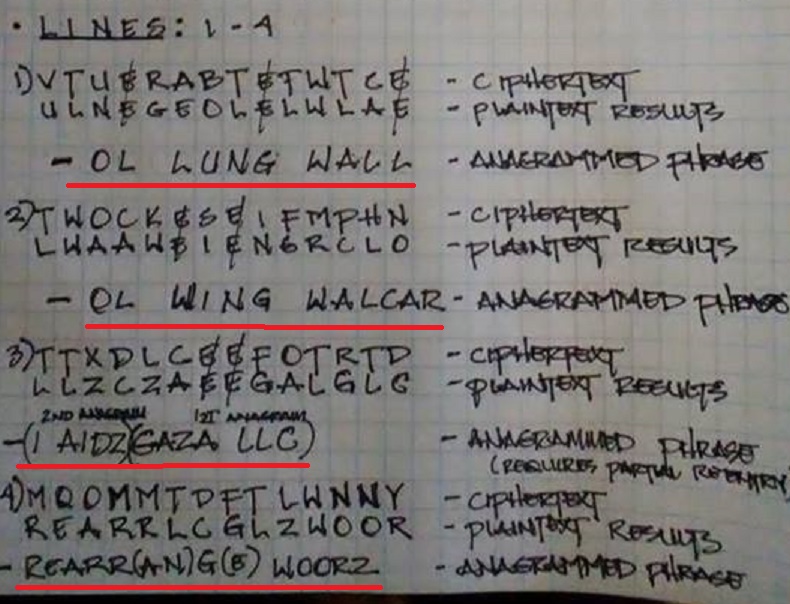 • LINES: 1-4
1) VTUERABTETWTCE - CIPHERTEXT
ULNEGEOLELWLAE - PLAINTEXT RESULTS
- OL LUNG WALL - ANAGRAMMED PHRASE
2) TWOCKESEIFMPHN - CIPHERTEXT
LWAAWEIENGRCLO - PLAINTEXT RESULTS
- OL WING WALCAR - ANAGRAMMED PHRASE
3) TTXDLCEEFOTRTD - CIPHERTEXT
LLZCZAEEGALGLC - PLAINTEXT RESULTS
2ND ANAGRAM 1ST ANAGRAM
- (I AIDZ)(GAZA LLC) - ANAGRAMMED PHRASE
(REQUIRES PARTIAL REENTRY)
4) MQOMMTDFTLWNNY - CIPHERTEXT
REARRLCGLZWOOR - PLAINTEXT RESULTS
- REARR(AN)G(E) WOORZ - ANAGRAMMED PHRASE